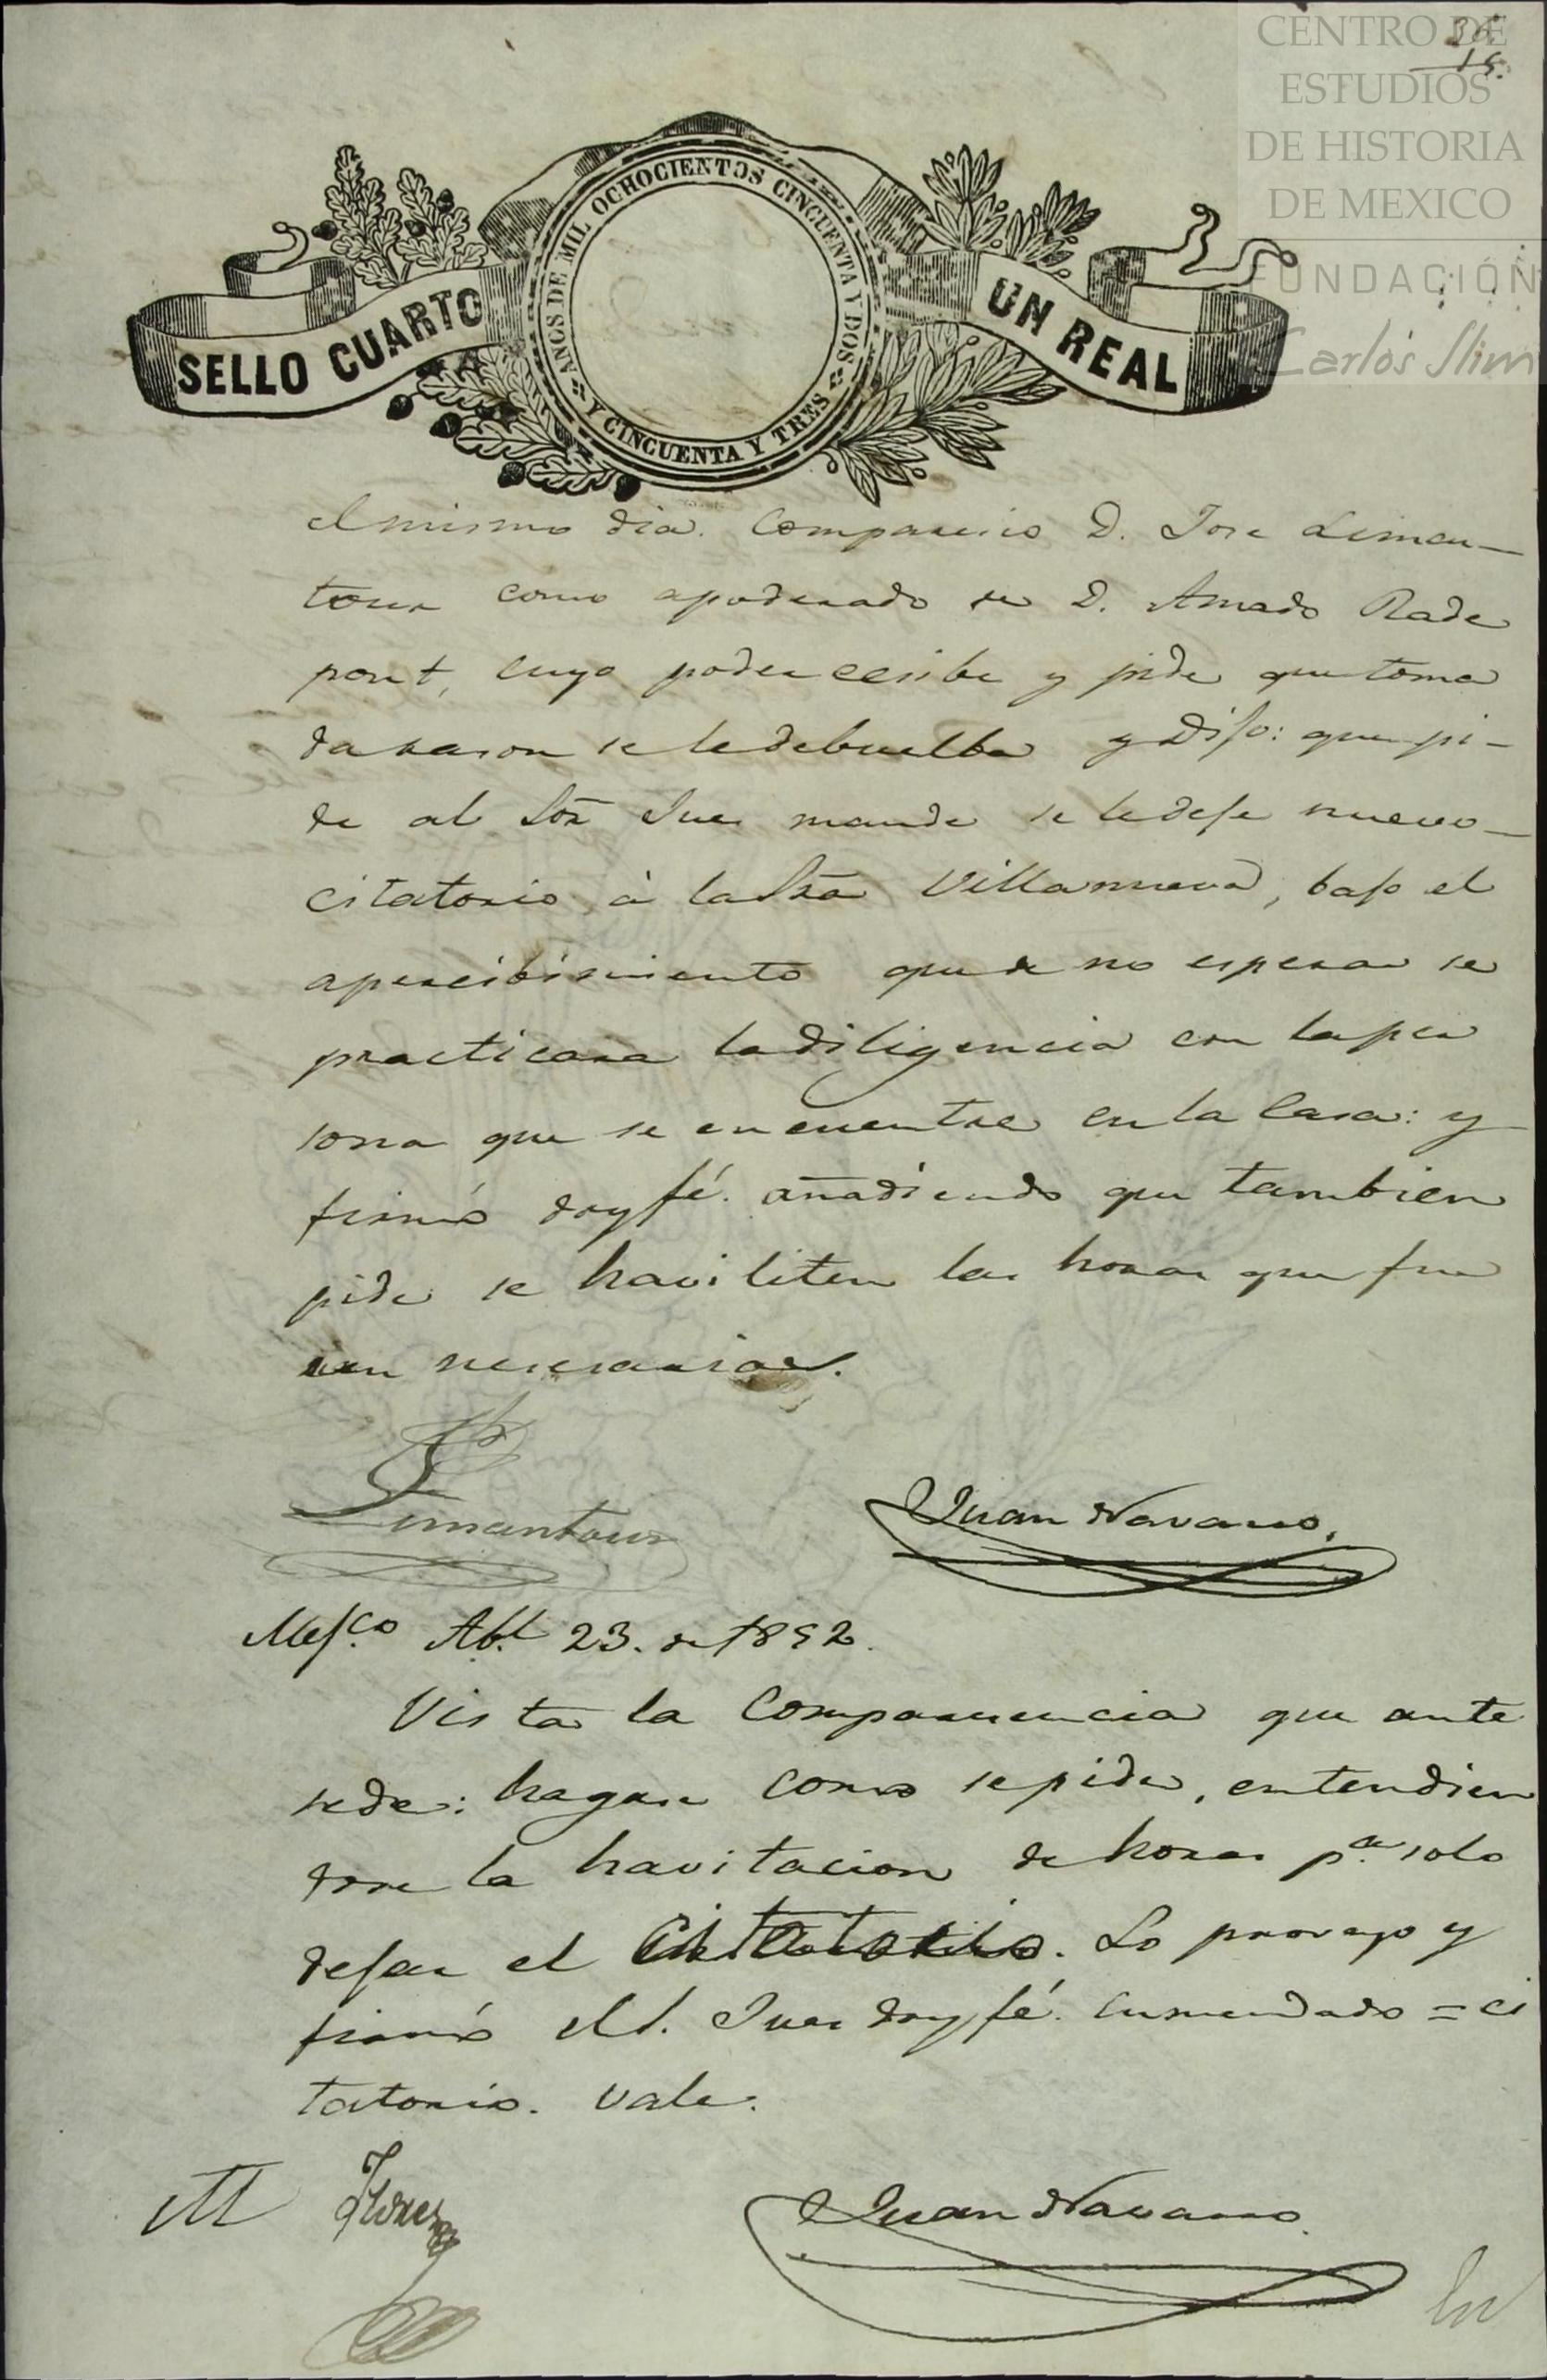 CENTRO DE
ESTUDIOS
DE HISTORIA
DE MEXICO
FUNDACIÓN
Carlos Slim
15.
AÑOS DE MIL OCHOCIENTOS CINCUENTA Y DOS
Y CINCUENTA Y TRES
SELLO CUARTO
UN REAL
el mismo dia. Comparecio D. Jose Liman-
tour como apoderado de D. Amado Rade
pont, cuyo poder ecsibe y pide que toma
da rason se le debuelba y Dijo: que pi-
de al Sór Jues mande se le deje nuevo
citatorio à la Srã Villanueva, bajo el
apercibimiento que de no esperar se
practicara la diligencia con la per
sona que se encuentre en la Casa: y
firmó doy fé. añadiendo que tambien
pide se haviliten las horas que fue
sen nesesarias.
Limantour
Juan Navarro.
Mejco Abl 23. de 1852.
Vista la Comparecencia que ante
sede: hagase como se pide, entendien
dose la havitacion de horas pa solo
dejar el Citatorio. Lo proveyo y
firmó el S. Jues doy fé. Enmendado = ci
tatorio. Vale.
M Flores
Juan Navarro